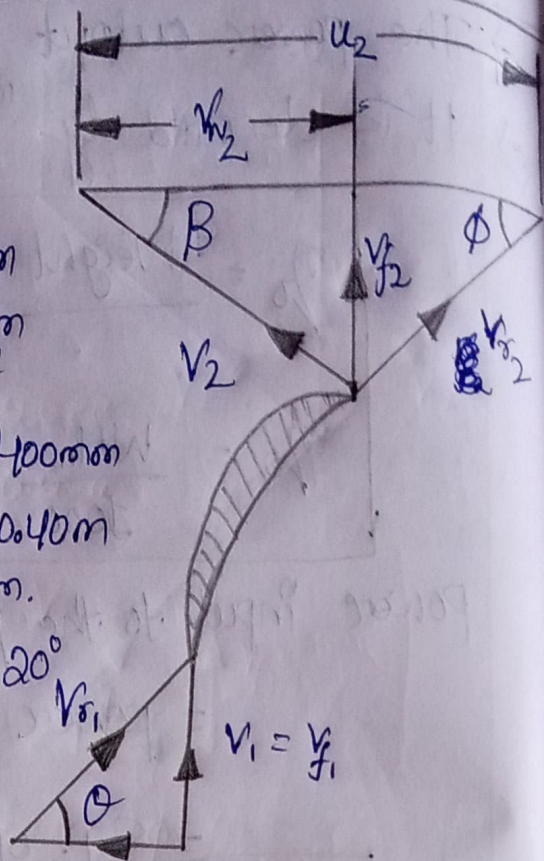 u₂
Vw₂
β
φ
Vf₂
m
m
V₂
Vr₂
400mm
0.40m
m.
20°
Vr₁
V₁ = Vf₁
θ